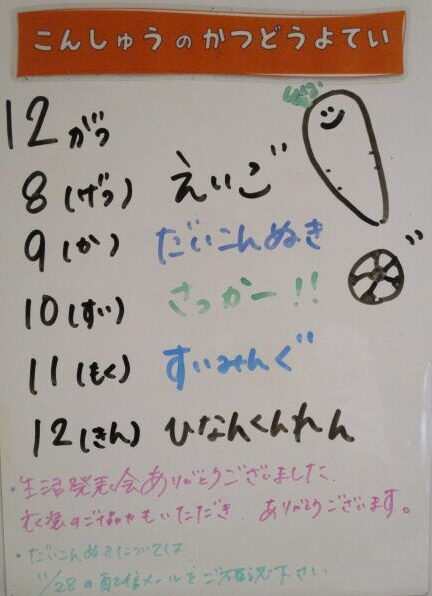 こんしゅうのかつどうよてい
12がつ
8(げつ) えいご
9(か) だいこんぬき
10(すい) さっかー!!
11(もく) すいみんぐ
12(きん) ひなんくんれん
・生活発表会ありがとうございました。
いただき ありがとうございます。
・だいこんぬきについては
11/28の配信メールをご確認下さい